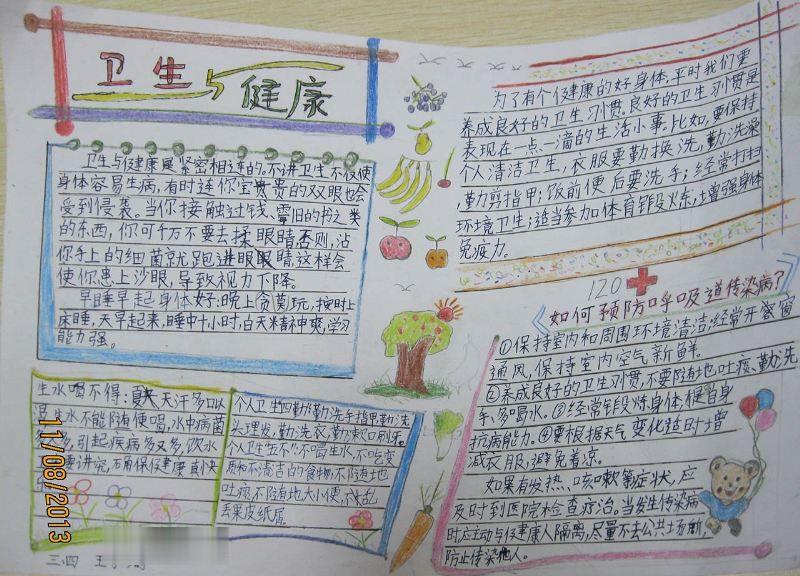 卫生与健康
卫生与健康是紧密相连的。不讲卫生不仅使
身体容易生病，有时连你宝贵的双眼也会
受到侵袭。当你接触过钱、零旧的书之类
的东西，你可千万不要去揉眼睛否则，沾
你手上的细菌就跑进眼眼睛这样会
使你患上沙眼，导致视力下降。
早睡早起身体好：晚上贪莫玩，按时上
床睡，天早起来，睡中十小时，白天精神爽，学习
能力强。
生水喝不得：夏天天汗多口以
生水不能随便喝，水中病菌
多，引起疾病多又多，饮水
要讲究，
个人卫生四勤：勤洗手指甲勤洗
头理发，勤洗衣，勤漱口刷牙。
个人卫生五不：不喝生水，不吃变
质和不清洁的食物，不随地
吐痰，不随地大小便，不乱
丢果皮纸屑。
三、四
为了有个健康的好身体，平时我们要
养成良好的卫生习惯。良好的卫生习惯是
表现在一点一滴的生活小事。比如，要保持
个人清洁卫生，衣服要勤换洗，勤洗澡
，勤剪指甲；饭前便后要洗手；经常打扫
环境卫生；适当参加体育锻炼，增强身体
免疫力。
120
《如何预防呼吸道传染病？》
①保持室内和周围环境清洁；经常开窗
通风，保持室内空气新鲜。
②养成良好的卫生习惯，不要随地吐痰、勤洗
手、多喝水。③经常锻炼身体，提自身
抗病能力。④要根据天气变化适时增
减衣服，避免着凉。
如果有发热、咳嗽等症状，应
及时到医院检查疗治。当发生传染病
时应主动与健康人隔离，尽量不去公共场所，
防止传染他人。
11/08/2013